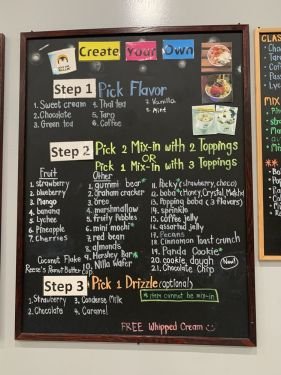 Create Your Own
Step 1 Pick Flavor
1. Sweet cream 4. Thai tea 7. Vanilla
2. Chocolate 5. Taro 8. Mint
3. Green tea 6. Coffee
Step 2 Pick 2 Mix-in with 2 Toppings
OR
Pick 1 Mix-in with 3 Toppings
Fruit
1. Strawberry
2. blueberry
3. Mango
4. banana
5. Lychee
6. Pineapple
7. Cherries
Coconut Flake
Reese's Peanut Butter Cup
Other
1. gummi bear*
2. Graham cracker
3. oreo
4. marshmallow
5. Fruity Pebbles
6. mini mochi*
7. red bean
8. almonds
9. Hershey Bar*
10. Nilla Wafer
11. Pocky*(strawberry, choco)
12. boba*(Honey, Crystal, Matcha)
13. Popping boba (3 Flavors)
14. sprinkle
15. coffee jelly
16. assorted jelly
17. Pecans
18. Cinnamon Toast crunch
19. Panda Cookie*
20. cookie dough New!
21. Chocolate Chip
Step 3 Pick 1 Drizzle (optional)
1. Strawberry 3. Condense Milk
2. Chocolate 4. Caramel
* item cannot be mix-in
FREE Whipped Cream
CLAS
MIX